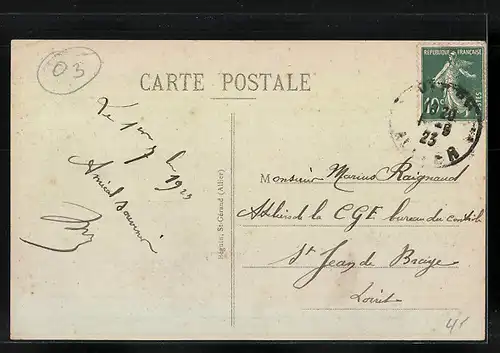 03
CARTE POSTALE
RÉPUBLIQUE FRANÇAISE
10c
POSTES
20
-8
23
1923
Amical souvenir
Béguin, St-Gérand (Allier)
Monsieur Marius Raignaud
Ateliers de la CGE bureau du contrôle
St Jean de Braye
Loiret